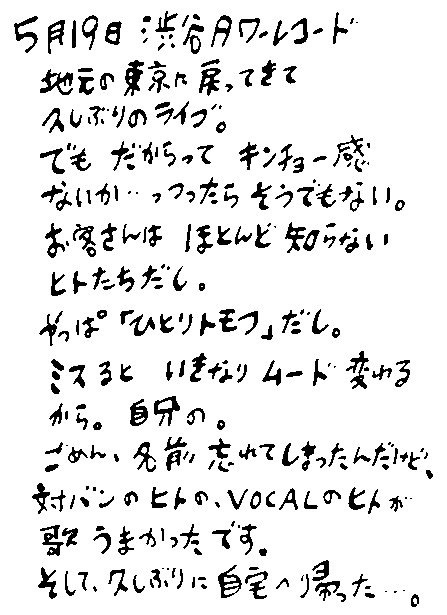 5月19日 渋谷タワーレコード
地元の東京に戻ってきて
久しぶりのライブ。
でも だからって キンチョー感
ないか…っつったら そうでもない。
お客さんは ほとんど 知らない
ヒトたちだし。
やっぱ「ひとりトモフ」だし。
ミスると いきなり ムード 変わる
から。自分の。
ごめん、名前 忘れてしまったんだけど、
対バンのヒトの、VOCALのヒトが
歌 うまかったです。
そして、久しぶりに 自宅へ帰った…。